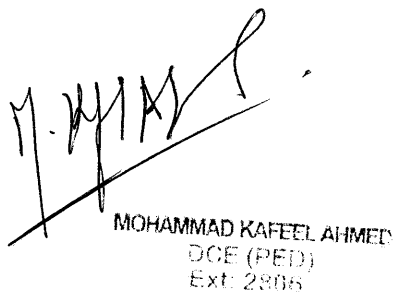 MOHAMMAD KAFEEL AHMED
DCE (PED)
Ext: 2806